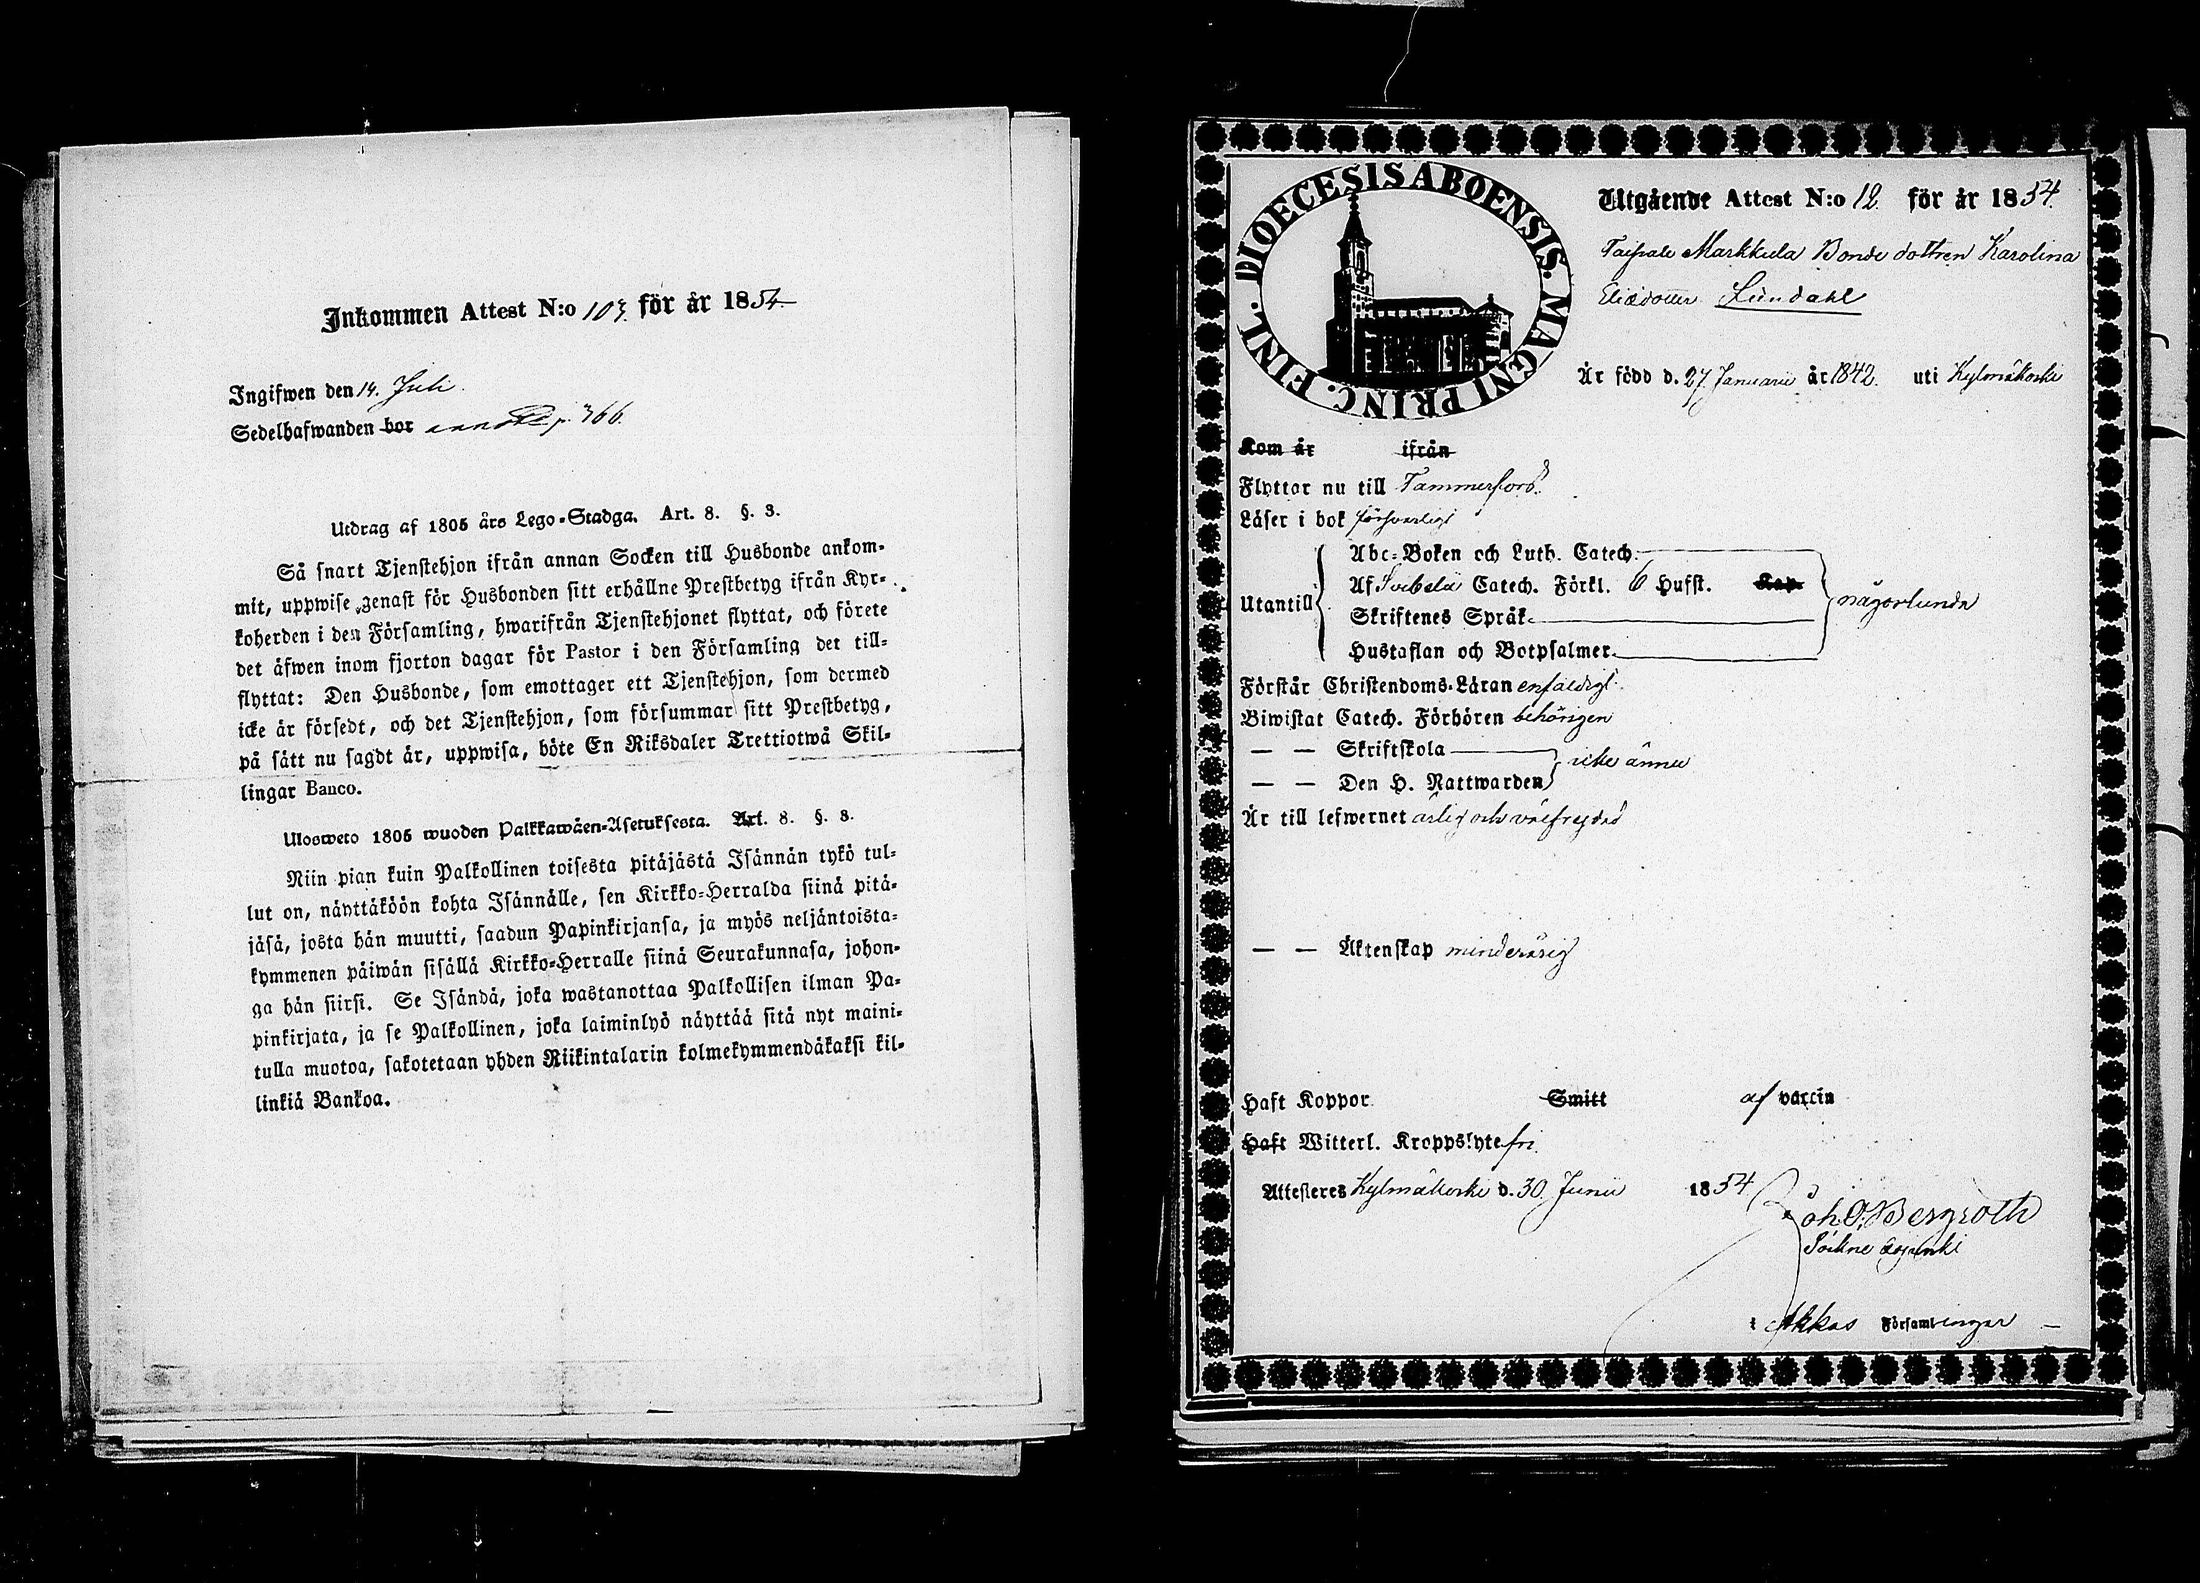 Inkommen Attest N:o 103. för år 1854
Ingifwen den 14. Juli.
Sedelhafwanden bor p. 366.
Utdrag af 1805 års Lego-Stadga. Art. 8. §. 3.
Så snart Tjenstehjon ifrån annan Socken till Husbonde ankom-
mit, uppwise genast för Husbonden sitt erhållne Prestbetyg ifrån Kyr-
koherden i den Församling, hwarifrån Tjenstehjonet flyttat, och förete
det äfwen inom fjorton dagar för Pastor i den Församling det till-
flyttat: Den Husbonde, som emottager ett Tjenstehjon, som dermed
icke är försedt, och det Tjenstehjon, som försummar sitt Prestbetyg,
på sätt nu sagdt är, uppwisa, böte En Riksdaler Trettiotwå Skil-
lingar Banco.
Ulosweto 1805 wuoden Palkkawäen-Asetuksesta. Art. 8. §. 3.
Niin pian kuin Palkollinen toisesta pitäjästä Isännän tykö tul-
lut on, näyttäköön kohta Isännälle, sen Kirkko-Herralda siinä pitä-
jäsä, josta hän muutti, saadun Papinkirjansa, ja myös neljäntoista-
kymmenen päiwän sisällä Kirkko-Herralle siinä Seurakunnasa, johon-
ga hän siirsi. Se Isändä, joka wastanottaa Palkollisen ilman Pa-
pinkirjata, ja se Palkollinen, joka laiminlyö näyttää sitä nyt maini-
tulla muotoa, sakotetaan yhden Riikintalarin kolmekymmendäkaksi kil-
linkiä Bankoa.
DIOECESIS ABOENSIS. MAGNI PRINC. FINL.
Utgående Attest N:o 12. för år 1854.
Taipale Markkula Bonde dottren Karolina
Eliædotter Lundahl
Är född d. 27 Januarii år 1842. uti Kylmäkoski
Kom år ifrån
Flyttar nu till Tammerfors.
Läser i bok försvarligt
Abc-Boken och Luth. Catech.
Af Svebelii Catech. Förkl. 6 Hufst. Kap
Utantill någorlunda
Skriftenes Språk
Hustaflan och Botpsalmer
Förstår Christendoms-Läran enfaldigt
Biwistat Catech. Förhören behörigen
— — Skriftskola
icke ännu
— — Den H. Nattwarden
Är till lefwernet ärlig och välfrejdad
— — Äktenskap minderårig
Haft Koppor Smitt af vaccin
Haft Witterl. Kroppslyte fri.
Attesteres Kylmäkoski d. 30. Junii 1854
Joh. O. Bergroth
i Akkas Församlingar